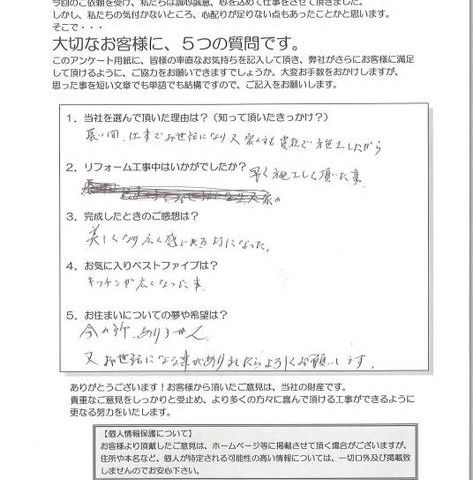 今回のご依頼を受け、私たちは誠心誠意、心を込めて仕事をさせて頂きました。
しかし、私たちの気付かないところ、心配りが足りない点もあったことかと思います。
そこで・・・
大切なお客様に、５つの質問です。
このアンケート用紙に、皆様の率直なお気持ちを記入して頂き、弊社がさらにお客様に満足
して頂けるように、ご協力をお願いできますでしょうか。大変お手数をおかけしますが、
思った事を短い文章でも単語でも結構ですので、ご記入をお願いします。
1．当社を選んで頂いた理由は？（知って頂いたきっかけ？）
長い間、仕事でお世話になり又家の
2．リフォーム工事中はいかがでしたか？ 早く施工して頂いた事。
3．完成したときのご感想は？
美しくなり広く感じ
4．お気に入りベストファイブは？
キッチンが広くなった事。
5．お住まいについての夢や希望は？
今の所ありません
又お世話になる事がありましたらよろしくお願いします。
ありがとうございます！お客様から頂いたご意見は、当社の財産です。
貴重なご意見をしっかりと受止め、より多くの方々に喜んで頂ける工事ができるように
更なる努力をいたします。
【個人情報保護について】
お客様より頂戴したご意見は、ホームページ等に掲載させて頂く場合がございますが、
住所や本名など、個人が特定される可能性の高い情報については、一切口外及び掲載致
しませんのでお安心下さい。